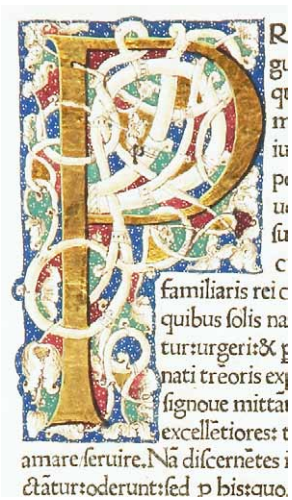 PR
gu
qu
m
iu
po
ue
su
c
familiaris rei c
quibus solis na
tur:urgeri:& p
nati treoris exp
signoue mittāt
excellētiores: t
amare/seruire.Nā discernētes i
ctātur:oderunt:sed p his:quo